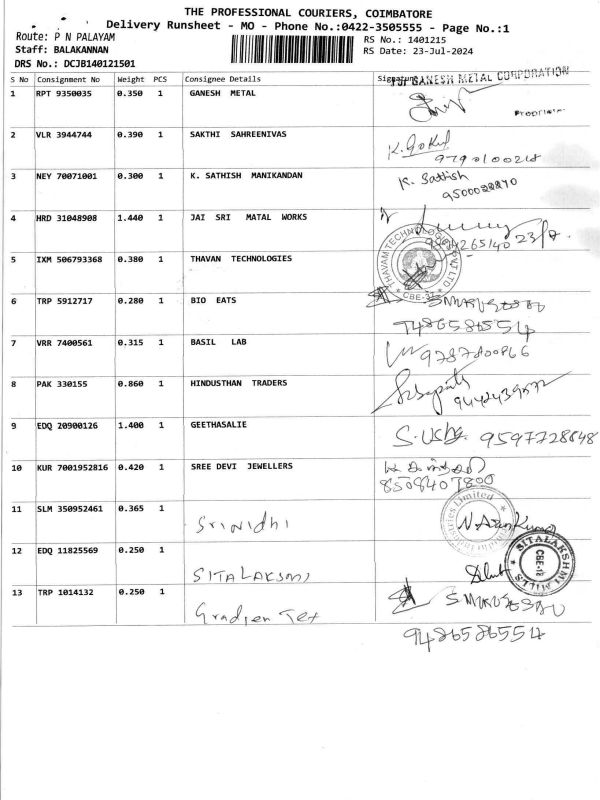 THE PROFESSIONAL COURIERS, COIMBATORE
Delivery Runsheet - MO - Phone No.:0422-3505555 - Page No.:1
Route: P N PALAYAM
RS No.: 1401215
Staff: BALAKANNAN
RS Date: 23-Jul-2024
DRS No.: DCJB140121501
S No Consignment No Weight PCS Consignee Details Signature
GANESH METAL CORPORATION
1 RPT 9350035 0.350 1 GANESH METAL
2 VLR 3944744 0.390 1 SAKTHI SAHREENIVAS K. Gokul
9790100218
3 NEY 70071001 0.300 1 K. SATHISH MANIKANDAN K. Sathish
4 HRD 31048908 1.440 1 JAI SRI MATAL WORKS
23/7
5 IXM 506793368 0.380 1 THAVAN TECHNOLOGIES
THAVAM TECHNOLOGIES PVT LTD
CBE-37
6 TRP 5912717 0.280 1 BIO EATS
9486586554
7 VRR 7400561 0.315 1 BASIL LAB
8 PAK 330155 0.860 1 HINDUSTHAN TRADERS
9 EDQ 20900126 1.400 1 GEETHASALIE S. Usha
9597728648
10 KUR 7001952816 0.420 1 SREE DEVI JEWELLERS
8508407800
11 SLM 350952461 0.365 1 Srinidhi N. Arun Kumar
Limited
12 EDQ 11825569 0.250 1 SITALAKSMI
SITALAKSHMI MILLS
CBE-18
13 TRP 1014132 0.250 1 Gradien Tex
9486586554